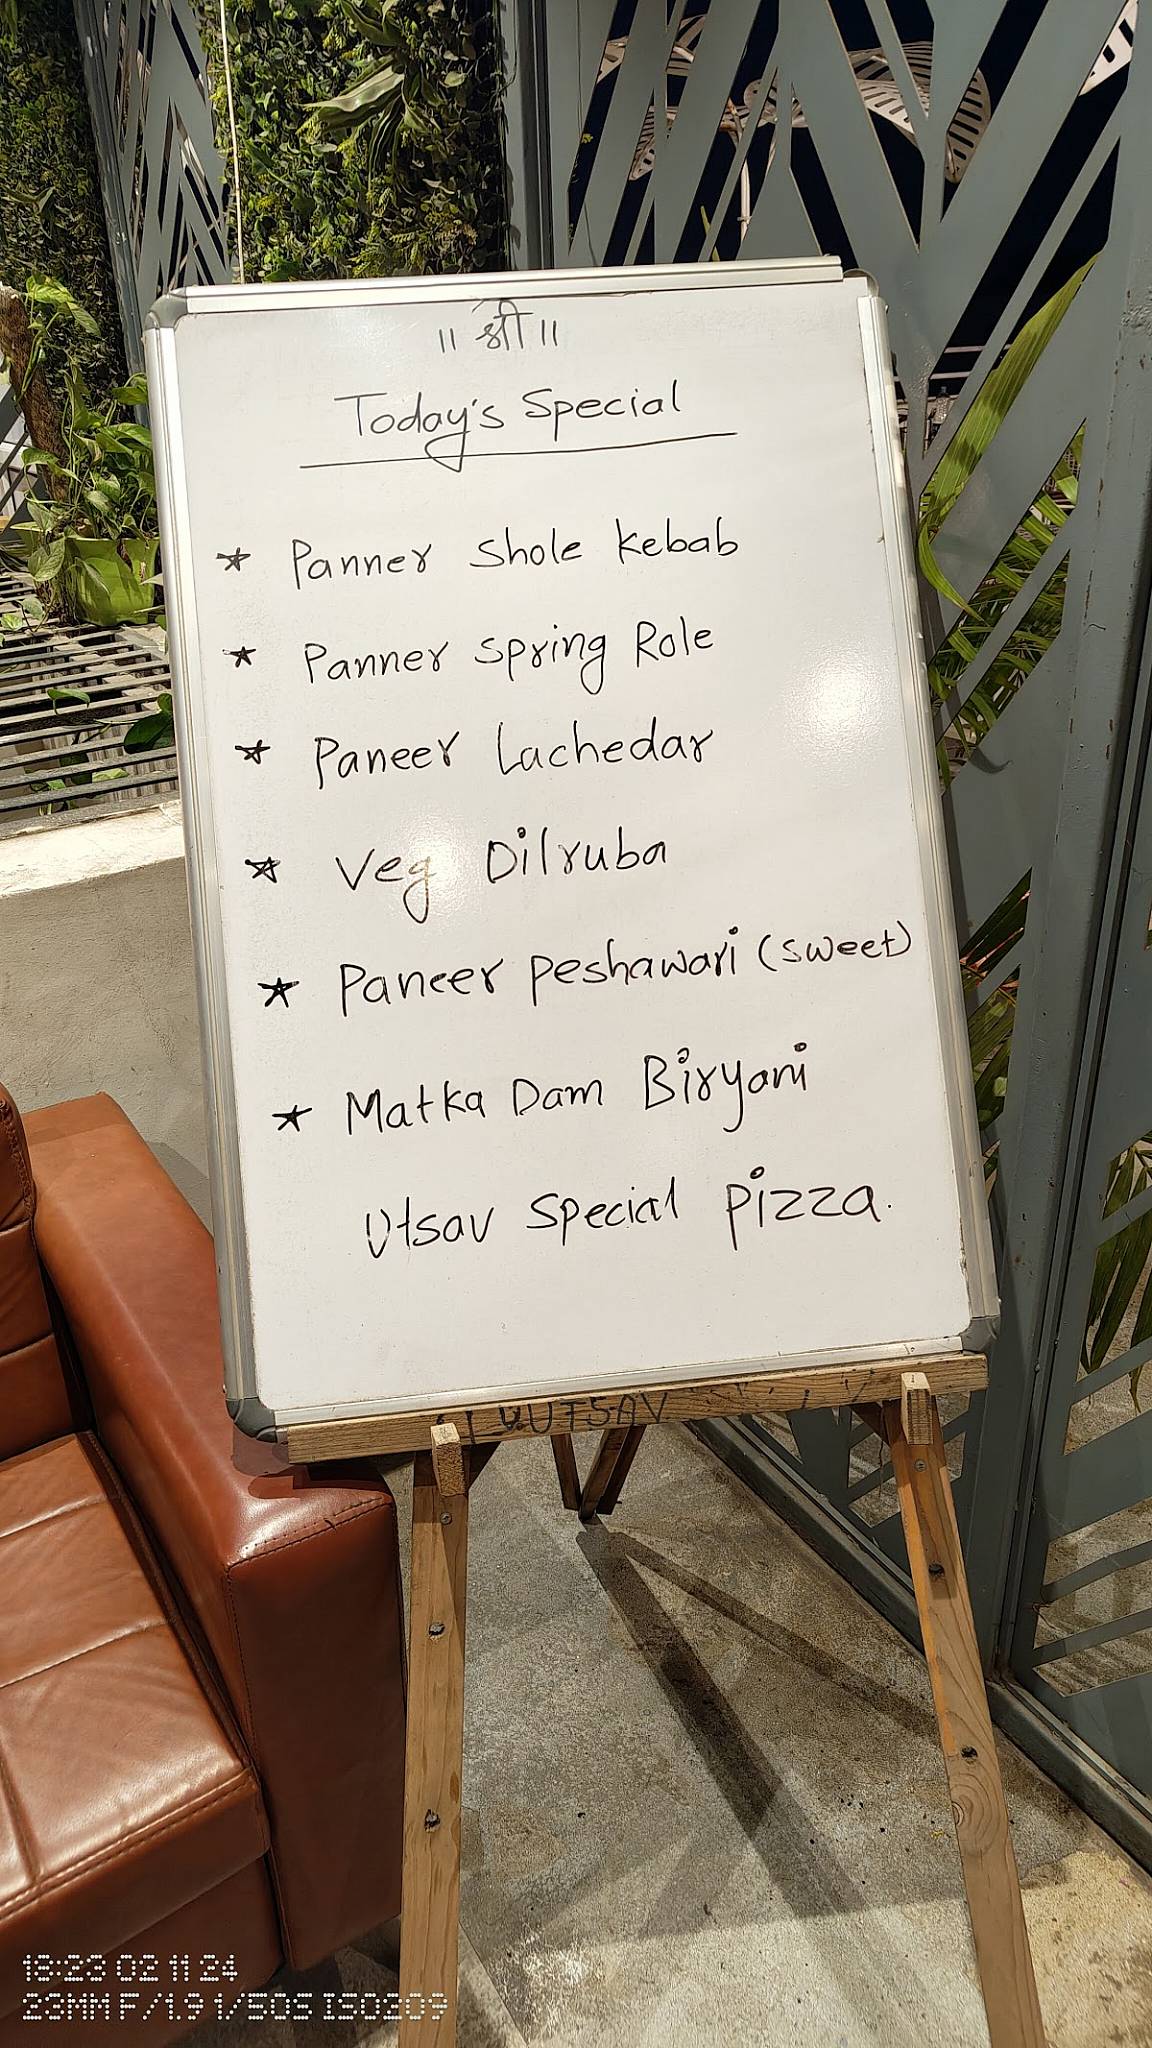 ॥ श्री ॥
Today's Special
* Panner Shole Kebab
* Panner Spring Role
* Paneer Lachedar
* Veg Dilruba
* Paneer Peshawari (Sweet)
* Matka Dam Biryani
Utsav Special Pizza.
V.UTSAV
18:23 02 11 24
23MM F/1.9 1/50S ISO209